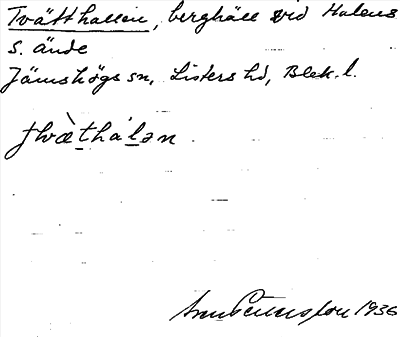 Tvätthallen, berghäll vid Halens
S. ände
Jämshögs sn, Listers hd, Blek. l.
tvæ̀tha'lən
1936